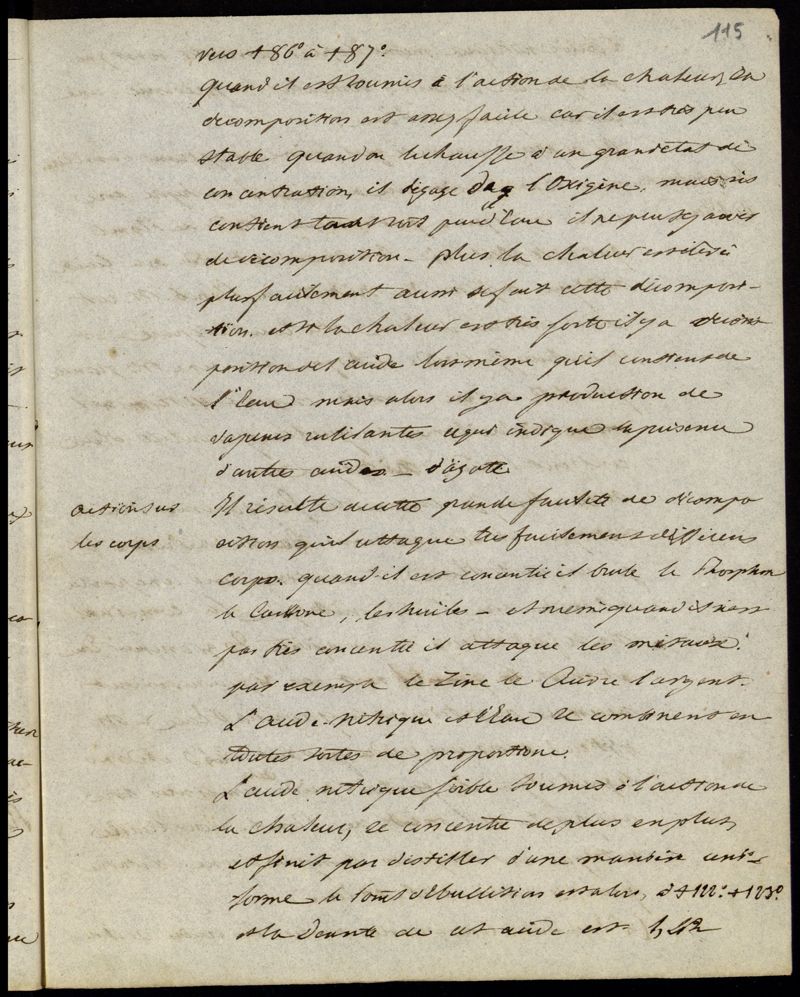 115
vers + 86° à + 87°.
quand il est soumis à l'action de la chaleur, sa
decomposition est assez facile car il est très peu
stable quand on le chauffe à un grand état de
concentration, il dégage de l'Oxigène, mais s'il
contient peu d'Eau il ne peut y avoir
de décomposition – plus la chaleur est élevée
plus facilement aussi se fait cette décomposi-
tion. et si la chaleur est très forte il y a décom
position de l'acide lors même qu'il contient de
l'Eau mais alors il y a production de
vapeurs rutilantes ce qui indique la présence
d'autres acides – d'azote
action sur
les corps
Il résulte de cette grande facilité de décompo
sition qu'il attaque très facilement différens
corps. quand il est concentré il brule le Phosphore
le Carbone, les huiles – et meme quand il n'est
pas très concentré il attaque les métaux.
par exemple le Zinc le Cuivre l'argent.
L'acide nitrique et l'Eau se combinent en
toutes sortes de proportions.
L'acide nitrique faible soumis à l'action de
la chaleur, se concentre de plus en plus,
et finit par distiller d'une manière uni-
forme le Point d'ébullition est alors, à + 122° + 123°.
et la Densité de cet acide est 1,42